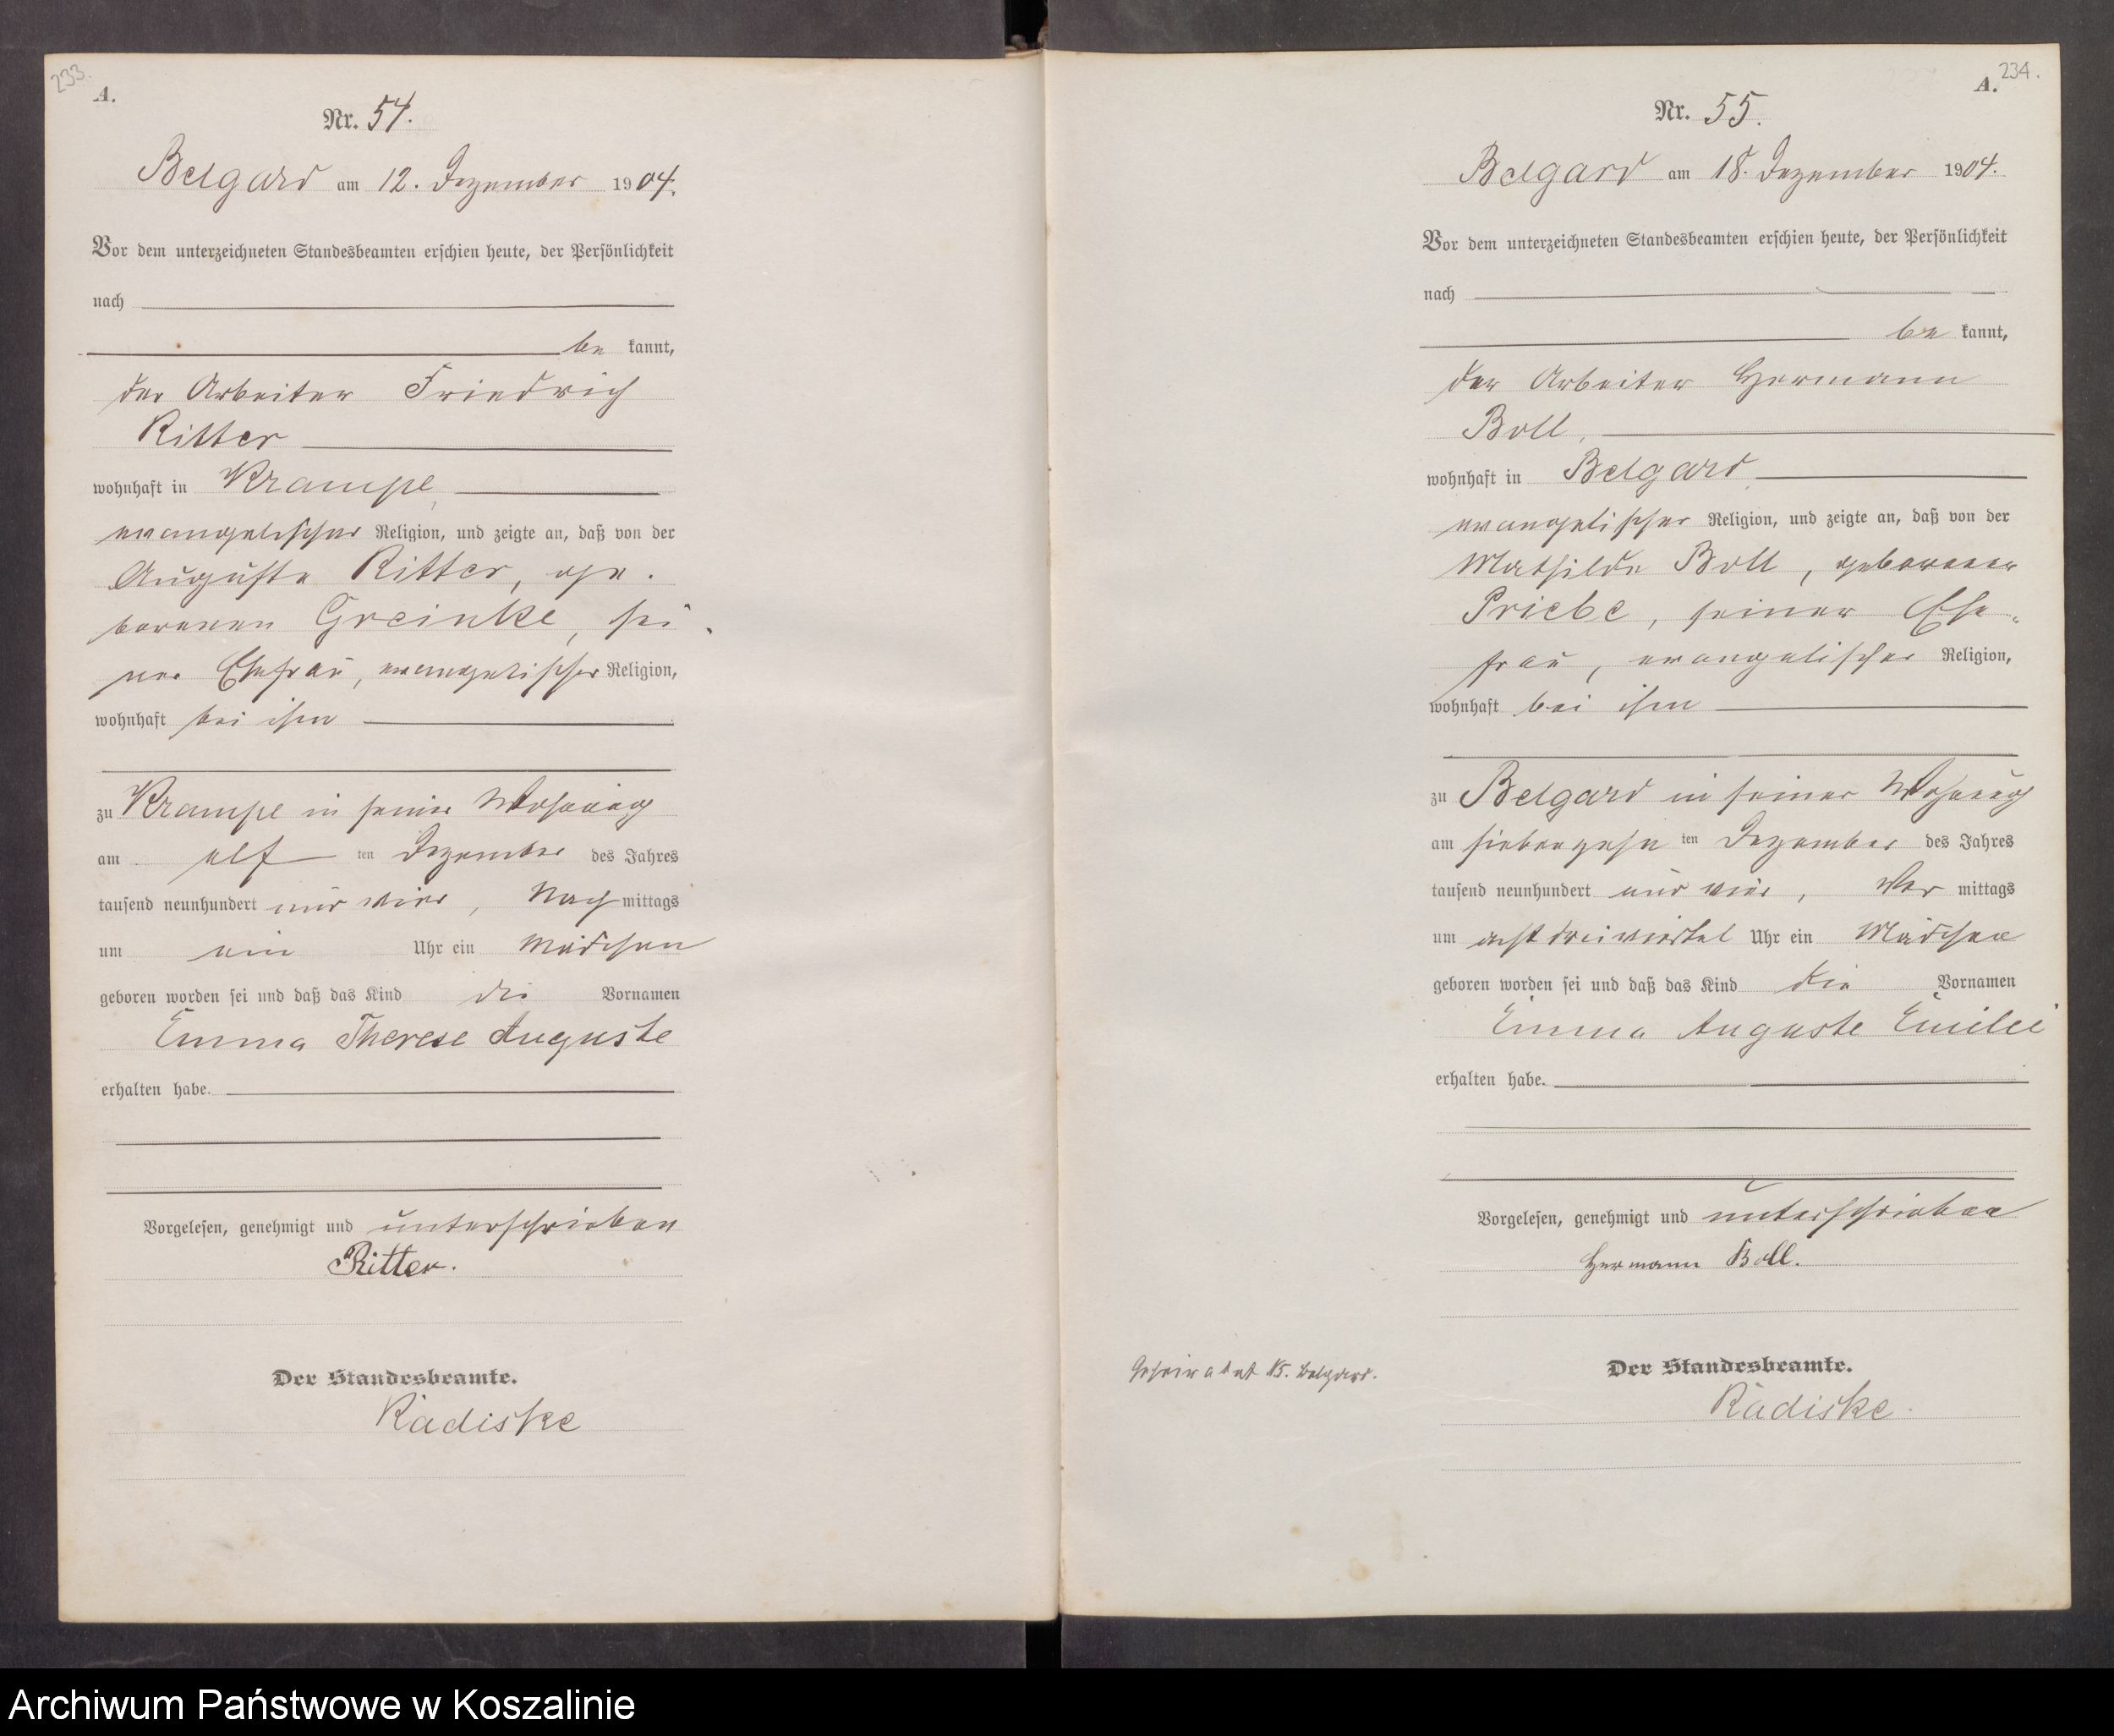 233.
A.
Nr. 54.
Belgard am 12. Dezember 1904.
Vor dem unterzeichneten Standesbeamten erschien heute, der Persönlichkeit
nach
be kannt,
der Arbeiter Friedrich
Ritter
wohnhaft in Krampe,
evangelischer Religion, und zeigte an, daß von der
Auguste Ritter, ge-
borenen Greinke, sei-
ner Ehefrau, evangelischer Religion,
wohnhaft bei ihm
zu Krampe in seiner Wohnung
am elf ten Dezember des Jahres
tausend neunhundert und vier, Nach mittags
um ein Uhr ein Mädchen
geboren worden sei und daß das Kind die Vornamen
Emma Therese Auguste
erhalten habe.
Vorgelesen, genehmigt und unterschrieben
Ritter.
Der Standesbeamte.
Radiske
234.
A.
Nr. 55.
Belgard am 18. Dezember 1904.
Vor dem unterzeichneten Standesbeamten erschien heute, der Persönlichkeit
nach
be kannt,
der Arbeiter Hermann
Boll,
wohnhaft in Belgard
evangelischer Religion, und zeigte an, daß von der
Mathilde Boll, geborenen
Priebe, seiner Ehe-
frau, evangelischer Religion,
wohnhaft bei ihm
zu Belgard in seiner Wohnung
am siebenzehn ten Dezember des Jahres
tausend neunhundert und vier, Vor mittags
um acht dreiviertel Uhr ein Mädchen
geboren worden sei und daß das Kind die Vornamen
Emma Auguste Emilie
erhalten habe.
Vorgelesen, genehmigt und unterschrieben
Hermann Boll.
Geheiratet Belgard.
Der Standesbeamte.
Radiske.
Archiwum Państwowe w Koszalinie